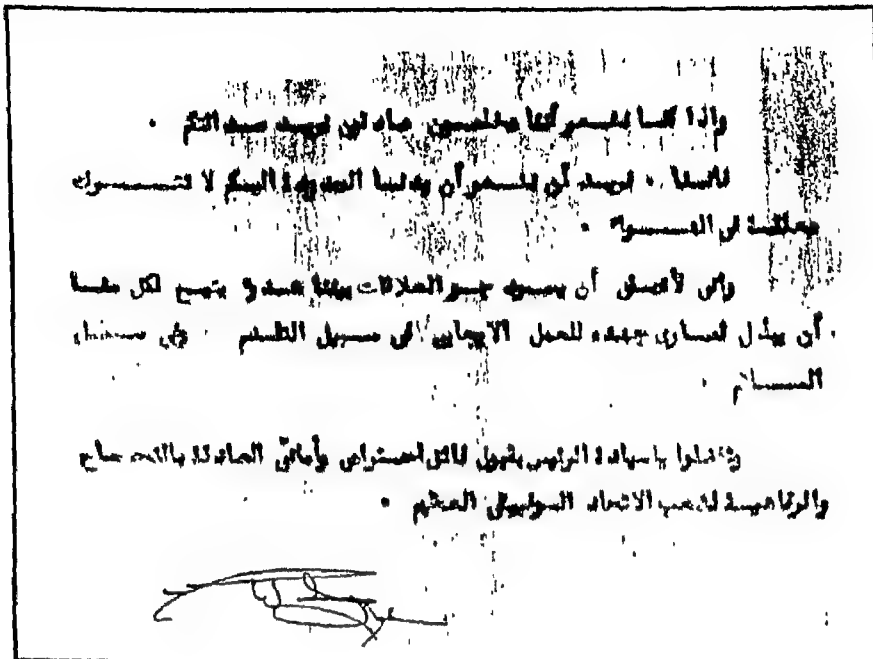 واذا كنا نشعر أننا مخلصين صادقين نريد صداقتكم .
فاننا . نريد أن نشعر أن يدنا الممدودة اليكم لا تتحرك
معلقة في الهواء .
واني لأتمنى أن يسود جو العلاقات بيننا يتيح لكل منا
أن يبذل قصارى جهده للعمل الايجابى فى سبيل التقدم وفي سبيل
السلام .
وتفضلوا ياسيادة الرئيس بقبول فائق احترامى وأمانىّ الصادقة بالنجاح
والرفاهية لشعب الاتحاد السوفيتى العظيم .